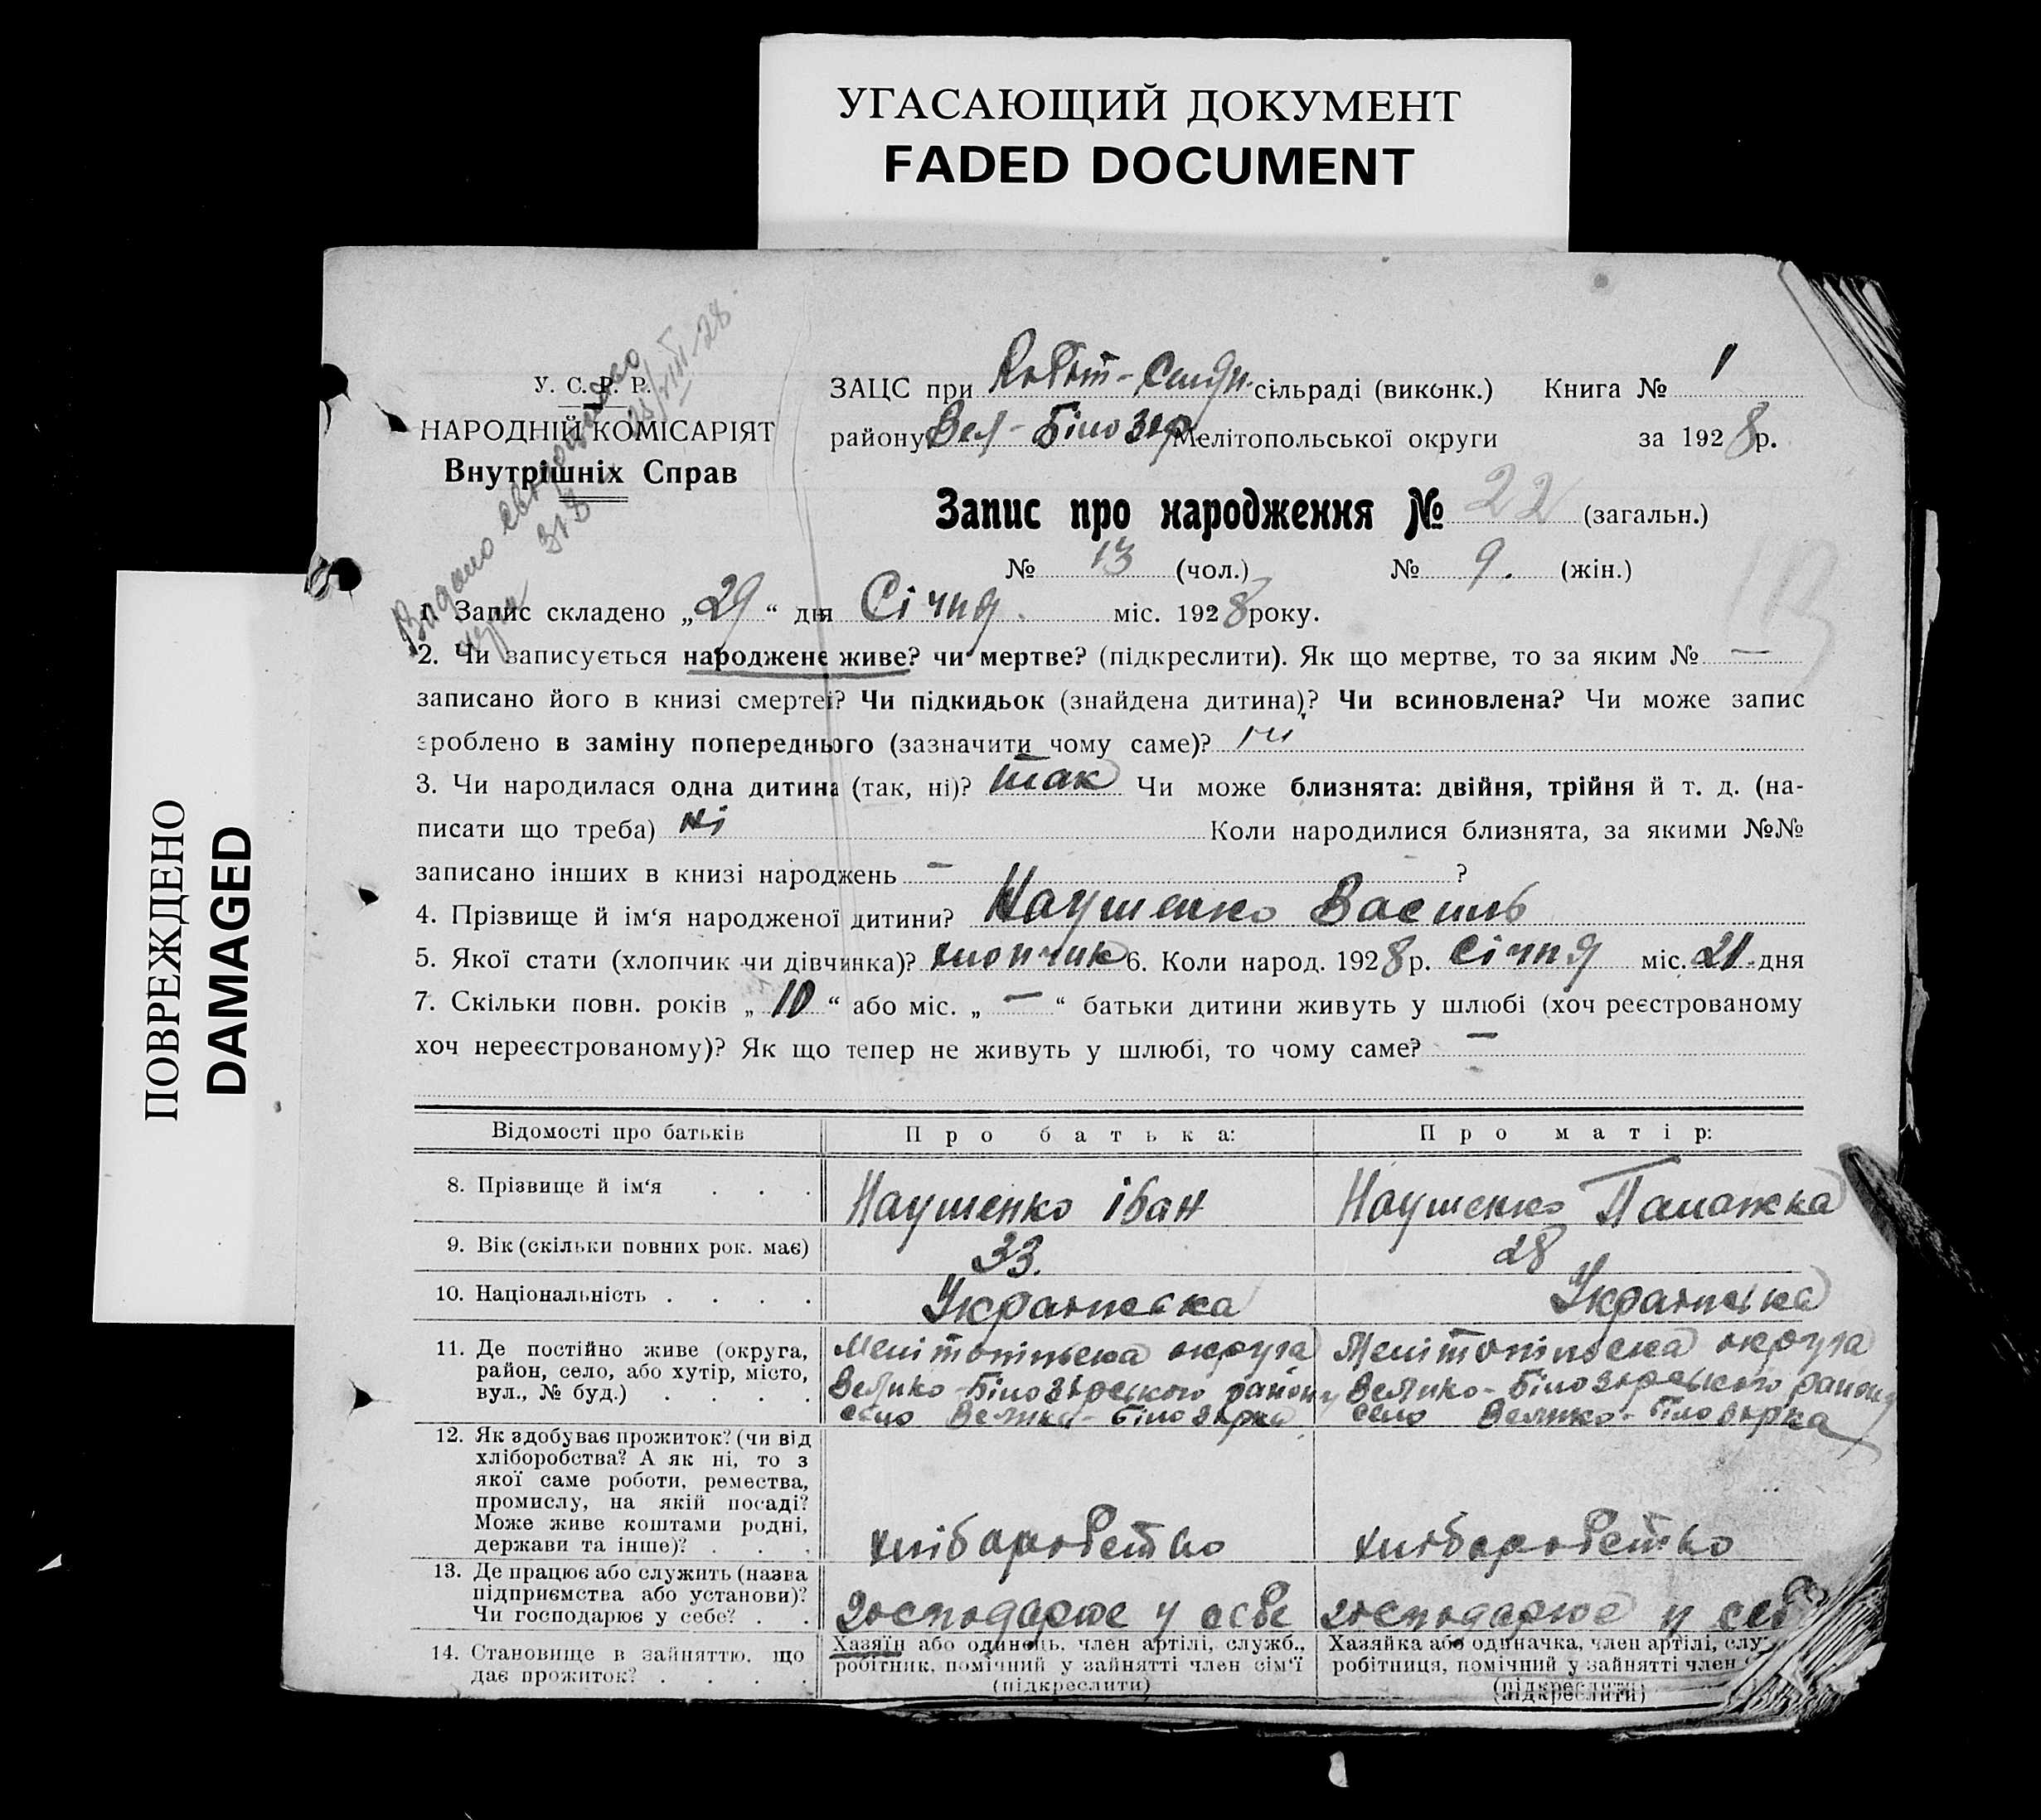 УГАСАЮЩИЙ ДОКУМЕНТ
FADED DOCUMENT
ПОВРЕЖДЕНО
DAMAGED
У. С. Р. Р.
НАРОДНІЙ КОМІСАРІЯТ
Внутрішніх Справ
Видано
318
ЗАЦС при сільраді (виконк.) Книга № 1
району Вел-Білозер Мелітопольської округи за 1928 р.
Запис про народження № 22 (загальн.)
№ 13 (чол.) № 9. (жін.)
1. Запис складено „29“ дня Січня міс. 1928 року.
2. Чи записується народжене живе? чи мертве? (підкреслити). Як що мертве, то за яким № —
записано його в книзі смертей? Чи підкидьок (знайдена дитина)? Чи всиновлена? Чи може запис
зроблено в заміну попереднього (зазначити чому саме)? ні
3. Чи народилася одна дитина (так, ні)? так Чи може близнята: двійня, трійня й т. д. (на-
писати що треба) ні Коли народилися близнята, за якими №№
записано інших в книзі народжень — ?
4. Прізвище й ім‘я народженої дитини? Наушенко Василь
5. Якої стати (хлопчик чи дівчинка)? хлопчик 6. Коли народ. 1928 р. Січня міс. 21 дня
7. Скільки повн. років „10“ або міс. „—“ батьки дитини живуть у шлюбі (хоч реєстрованому
хоч нереєстрованому)? Як що тепер не живуть у шлюбі, то чому саме? —
Відомості про батьків Про батька: Про матір:
8. Прізвище й ім‘я . . . Наушенко іван Наушенко
9. Вік (скільки повних рок. має) 33. 28
10. Національність . . . . Українська Українська
11. Де постійно живе (округа,
район, село, або хутір, місто,
вул., № буд.) . . . .
Мелітопільска округа Мелітопільска округа
Велико-Білозерського району Велико-Білозерського району
село Велика-Білозерка село Велико-Білозерка
12. Як здобуває прожиток? (чи від
хліборобства? А як ні, то з
якої саме роботи, ремества,
промислу, на якій посаді?
Може живе коштами родні,
держави та інше)? . . .
хлібаробство хлібаробство
13. Де працює або служить (назва
підприємства або установи)?
Чи господарює у себе? . .
господарює у себе господарює у себе
14. Становище в зайняттю, що
дає прожиток? . . . .
Хазяїн або одинець, член артілі, служб.,
робітник, помічний у зайнятті член сім‘ї
(підкреслити)
Хазяйка або одиначка, член артілі, слу
робітниця, помічний у зайнятті член
(підкреслити)